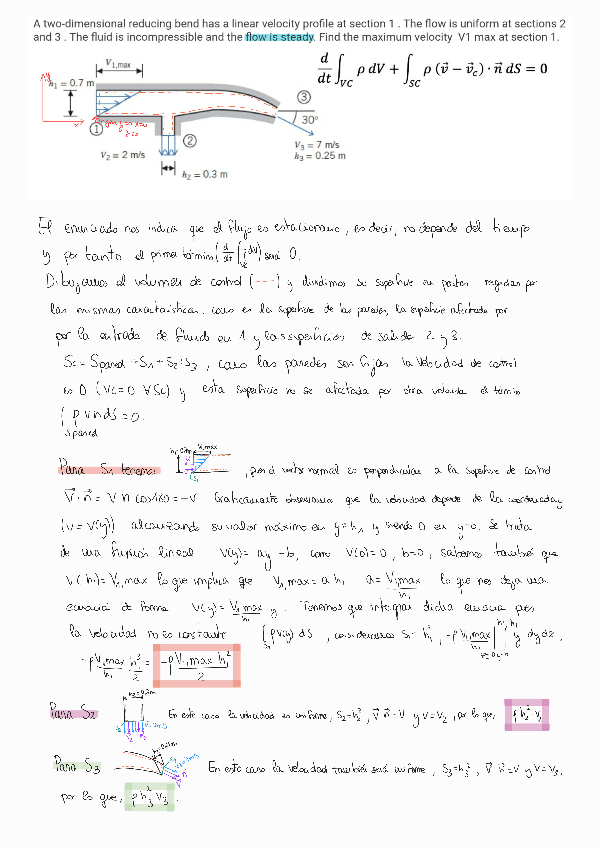 A two-dimensional reducing bend has a linear velocity profile at section 1 . The flow is uniform at sections 2
and 3 . The fluid is incompressible and the flow is steady. Find the maximum velocity V1 max at section 1.
V1,max
h1 = 0.7 m
d/dt ∫VC ρ dV + ∫SC ρ (v⃗ − v⃗c) · n⃗ dS = 0
③
30°
①
②
V2 = 2 m/s
V3 = 7 m/s
h3 = 0.25 m
h2 = 0.3 m
El enunciado nos indica que el flujo es estacionario, es decir, no depende del tiempo
y por tanto el primer término (d/dt ∫VC dV) será 0.
Dibujamos el volumen de control (---) y dividimos su superficie en partes regidas por
las mismas características, como es la superficie de las paredes, la superficie afectada por
por la entrada de fluido en 1 y las superficies de salida 2 y 3.
Sc = Spared + S1 + S2 + S3, como las paredes son fijas la velocidad de control
es 0 (Vc = 0 ∀Sc) y esta superficie no se afectada por otra velocidad el término
∫ ρ v n dS = 0.
Spared
Para S1 tenemos: V1,max
, pues el vector normal es perpendicular a la superficie de control
V⃗ · n⃗ = V n cos180 = −v Graficamente observamos que la velocidad depende de la coordenada y
(V = V(y)) alcanzando su valor máximo en y=h1 y siendo 0 en y=0. Se trata
de una función lineal V(y) = ay + b, como V(0)=0, b=0, sabemos también que
V(h1) = V1,max lo que implica que V1,max = a h1 a = V1max/h1 lo que nos deja una
ecuación de forma V(y) = V1max/h1 y. Tenemos que integrar dicha ecuación pues
la velocidad no es constante ∫S1 ρV(y) dS, consideramos S1 = h1², −ρ V1max/h1 ∫∫ y dy dz,
−ρ V1max/h1 h1³/2 = −ρ V1,max h1²/2
Para S2 h2=0,3m
En este caso la velocidad es uniforme, S2=h2², V⃗ n⃗ = V y V=V2, por lo que, ρ h2² V2
Para S3
En este caso la velocidad también será uniforme, S3=h3², V⃗ n⃗ = V y V=V3,
por lo que, ρ h3² V3.